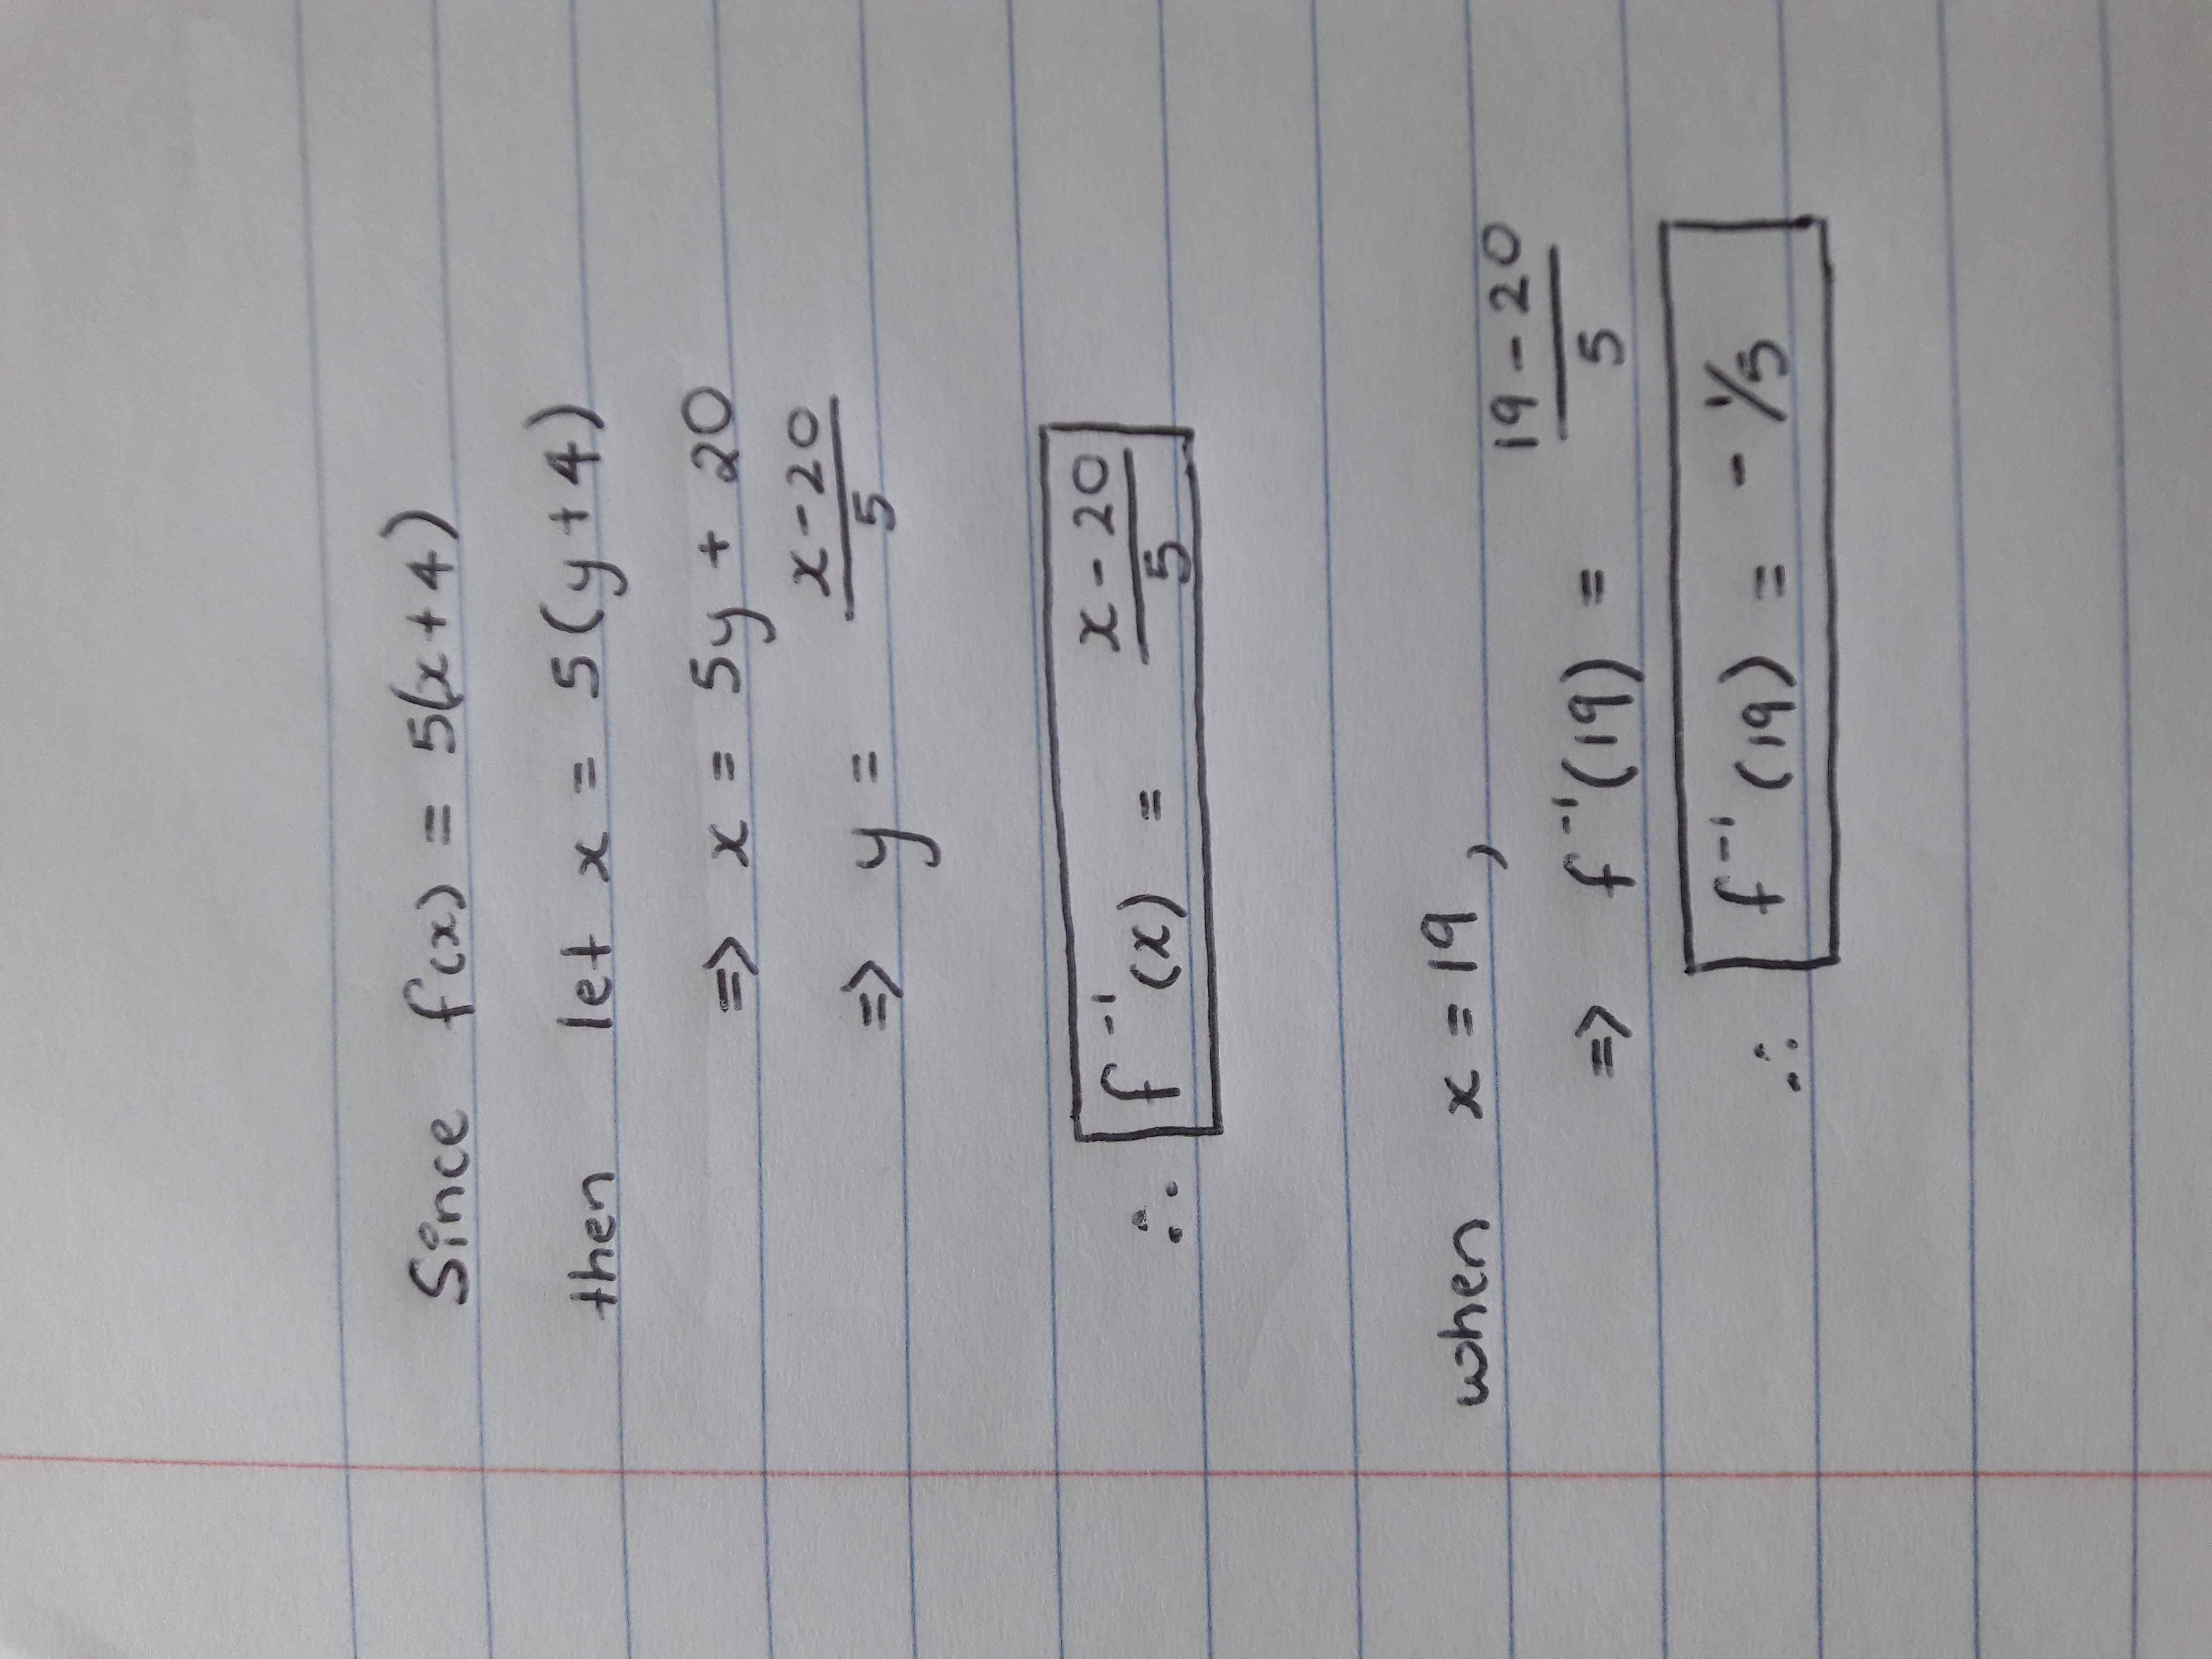 Since f(x) = 5(x+4)
then let x = 5(y+4)
=> x = 5y + 20
=> y = x-20/5
∴ f⁻¹(x) = x-20/5
when x=19,
=> f⁻¹(19) = 19-20/5
∴ f⁻¹(19) = - 1/5